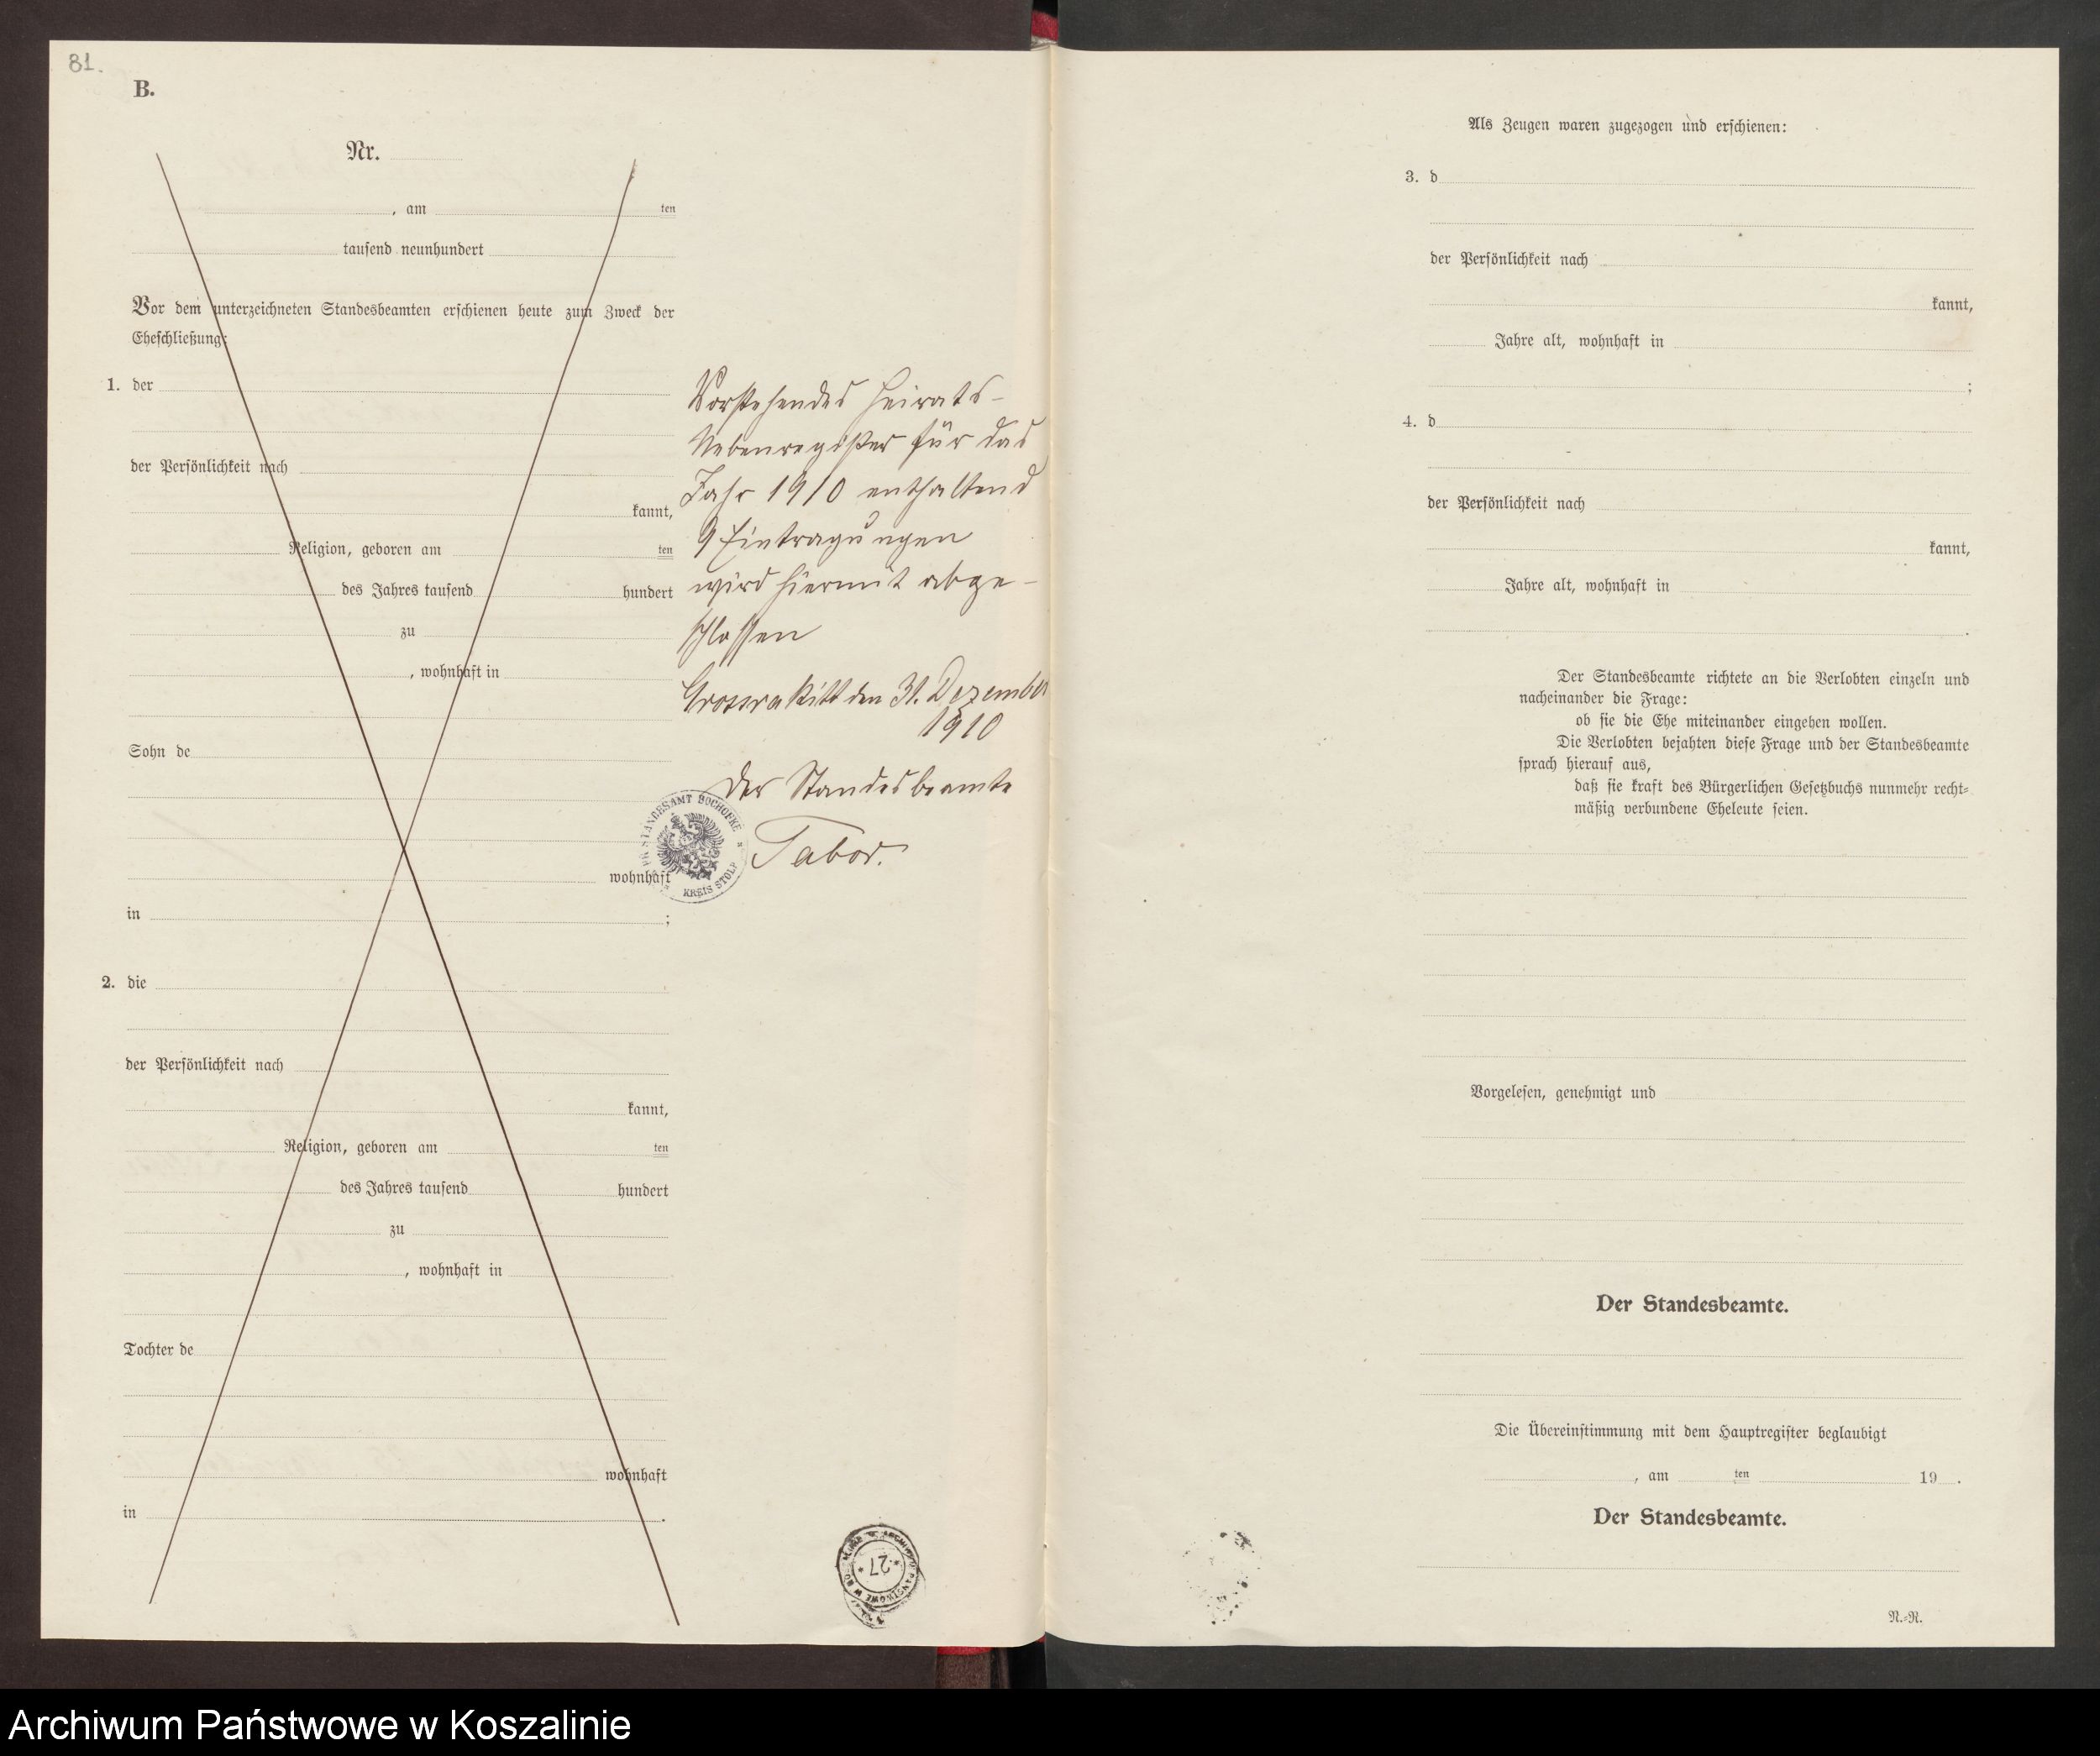 81.
B.
Nr.
, am ten
tausend neunhundert
Vor dem unterzeichneten Standesbeamten erschienen heute zum Zweck der
Eheschließung:
1. der
der Persönlichkeit nach
kannt,
Religion, geboren am ten
des Jahres tausend hundert
zu
, wohnhaft in
Sohn de
wohnhaft
in ;
2. die
der Persönlichkeit nach
kannt,
Religion, geboren am ten
des Jahres tausend hundert
zu
, wohnhaft in
Tochter de
wohnhaft
in .
Vorstehendes Heirats-
Nebenregister für das
Jahr 1910 enthaltend
9 Eintragungen
wird hiermit abge-
schlossen
Grossrakitt den 31. Dezember
1910
Der Standesbeamte
Tabor.
STANDESAMT BOCHOFKE
KREIS STOLP
ARCHIWUM PAŃSTWOWE W
* 27 *
Als Zeugen waren zugezogen und erschienen:
3. d
der Persönlichkeit nach
kannt,
Jahre alt, wohnhaft in
;
4. d
der Persönlichkeit nach
kannt,
Jahre alt, wohnhaft in
.
Der Standesbeamte richtete an die Verlobten einzeln und
nacheinander die Frage:
ob sie die Ehe miteinander eingehen wollen.
Die Verlobten bejahten diese Frage und der Standesbeamte
sprach hierauf aus,
daß sie kraft des Bürgerlichen Gesetzbuchs nunmehr recht-
mäßig verbundene Eheleute seien.
Vorgelesen, genehmigt und
Der Standesbeamte.
Die Übereinstimmung mit dem Hauptregister beglaubigt
, am ten 19 .
Der Standesbeamte.
N.-R.
Archiwum Państwowe w Koszalinie